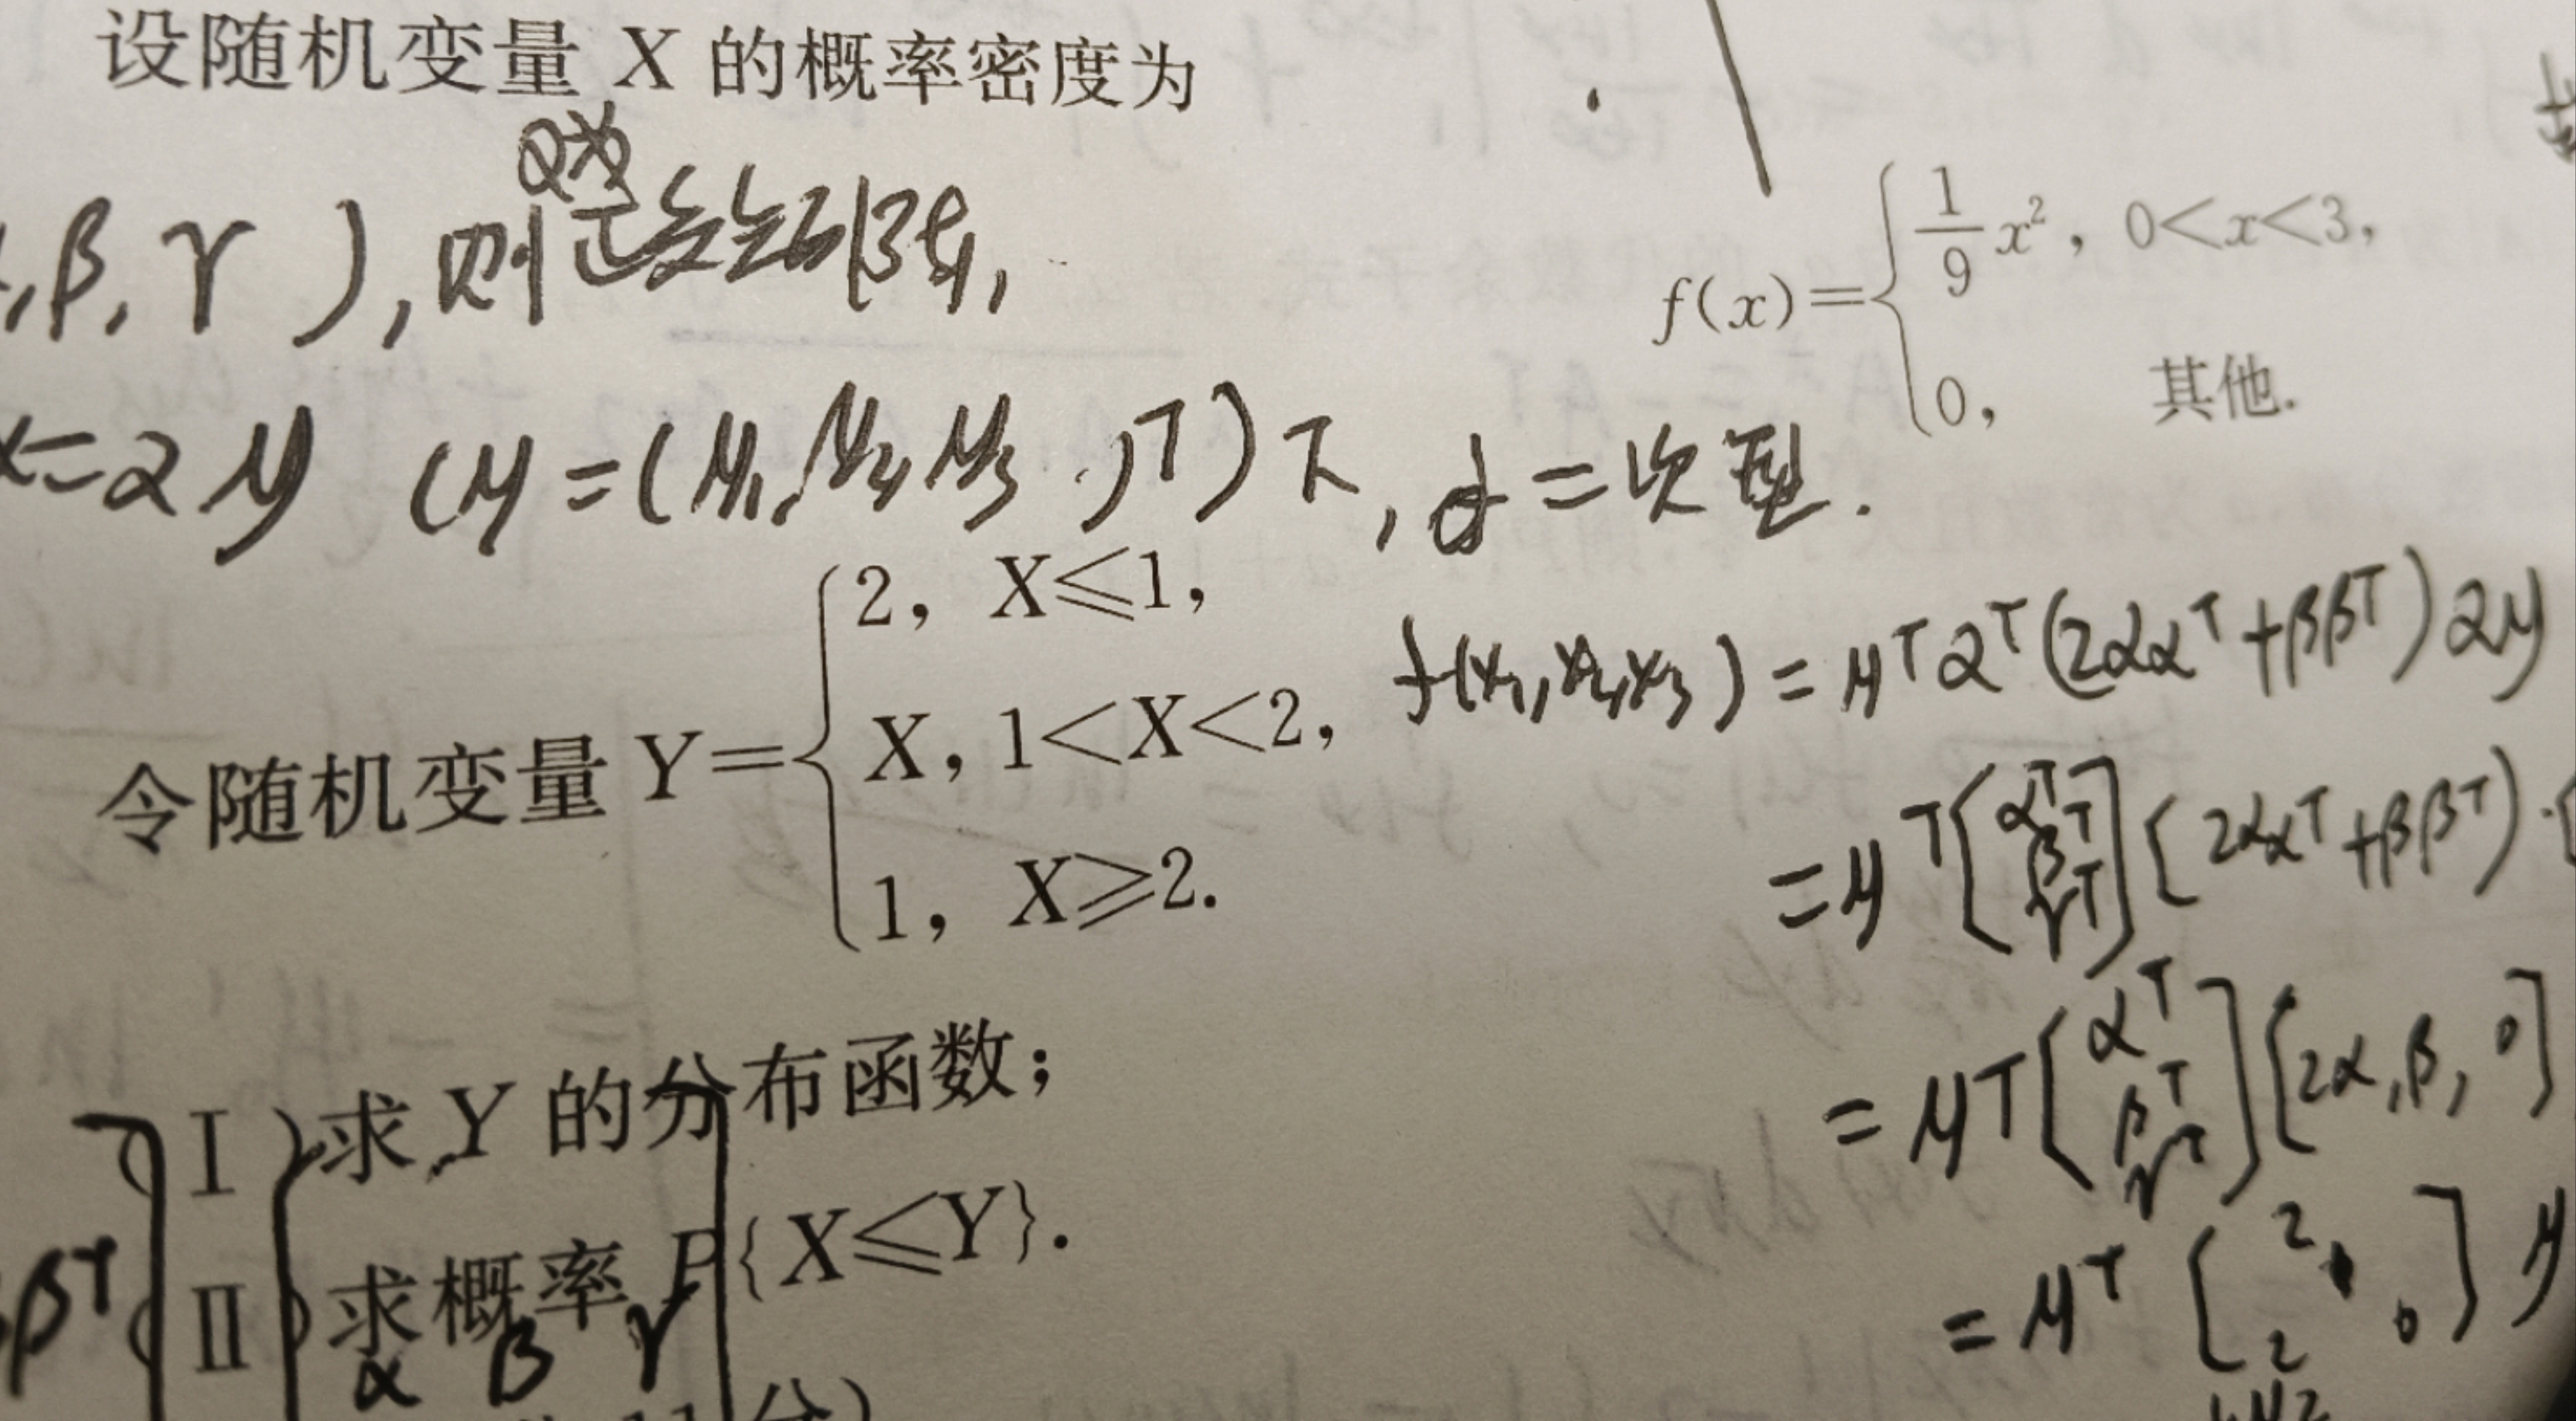 设随机变量 X 的概率密度为
f(x)={1/9 x², 0<x<3,
0, 其他.
β, γ ), 则
x=Qy (y=(y₁,y₂,y₃)ᵀ)下, 二次型.
令随机变量 Y={2, X⩽1,
X, 1<X<2,
1, X⩾2.
f(x₁,x₂,x₃)=yᵀQᵀ(2ααᵀ+ββᵀ)Qy
=yᵀ[αᵀ βᵀ γᵀ][2ααᵀ+ββᵀ)·[
=yᵀ[αᵀ βᵀ γᵀ][2α,β,0]
=yᵀ[2 1 0]y
(Ⅰ)求 Y 的分布函数;
(Ⅱ)求概率 P{X⩽Y}.
βᵀ
α β γ
分)